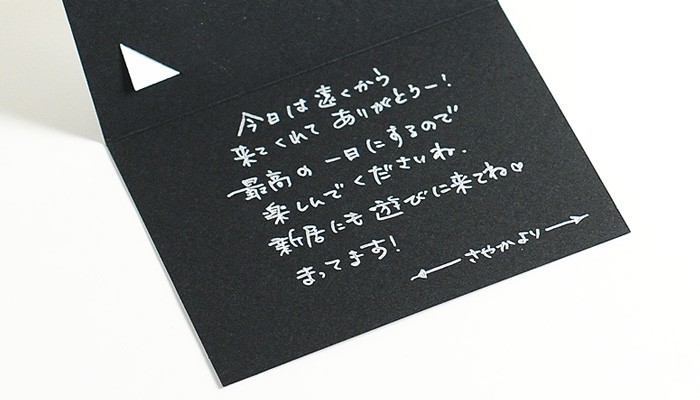 今日は遠くから
来てくれて ありがとうー!
最高の一日にするので
楽しんでくださいね.
新居にも遊びに来てね♡
まってます!
さやかより